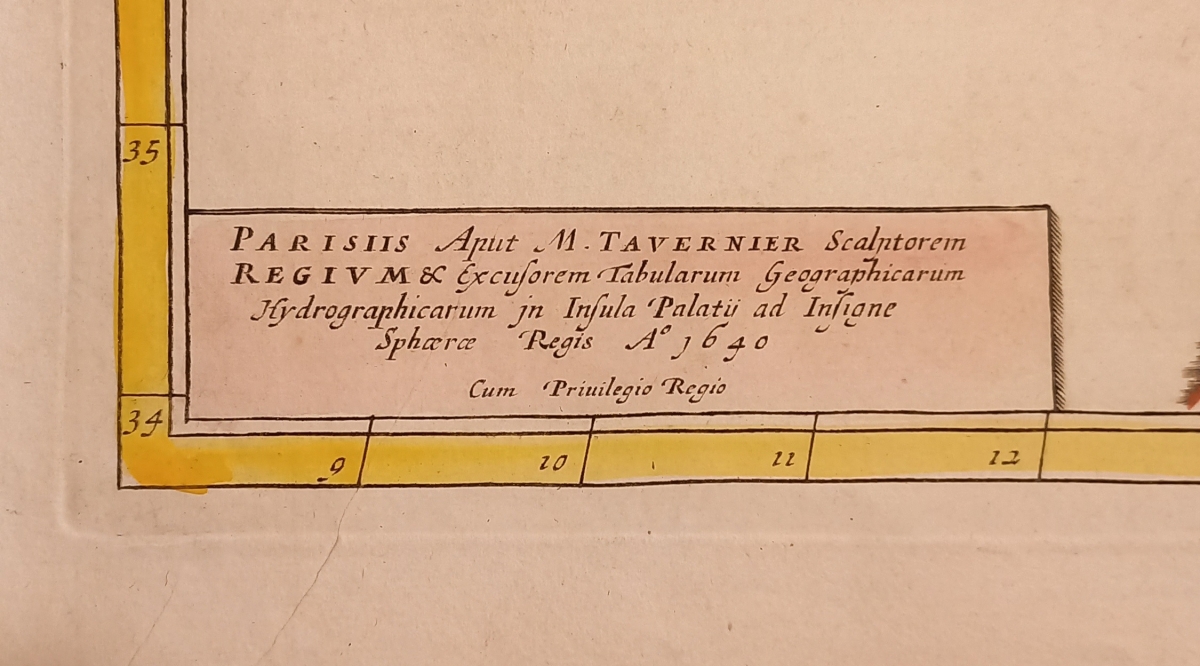 35
PARISIIS Aput M. TAVERNIER Scalptorem
REGIVM & Excuſorem Tabularum Geographicarum
Hydrographicarum jn Inſula Palatij ad Inſigne
Sphæræ Regis Aº 1640
Cum Priuilegio Regio
34
9 10 11 12